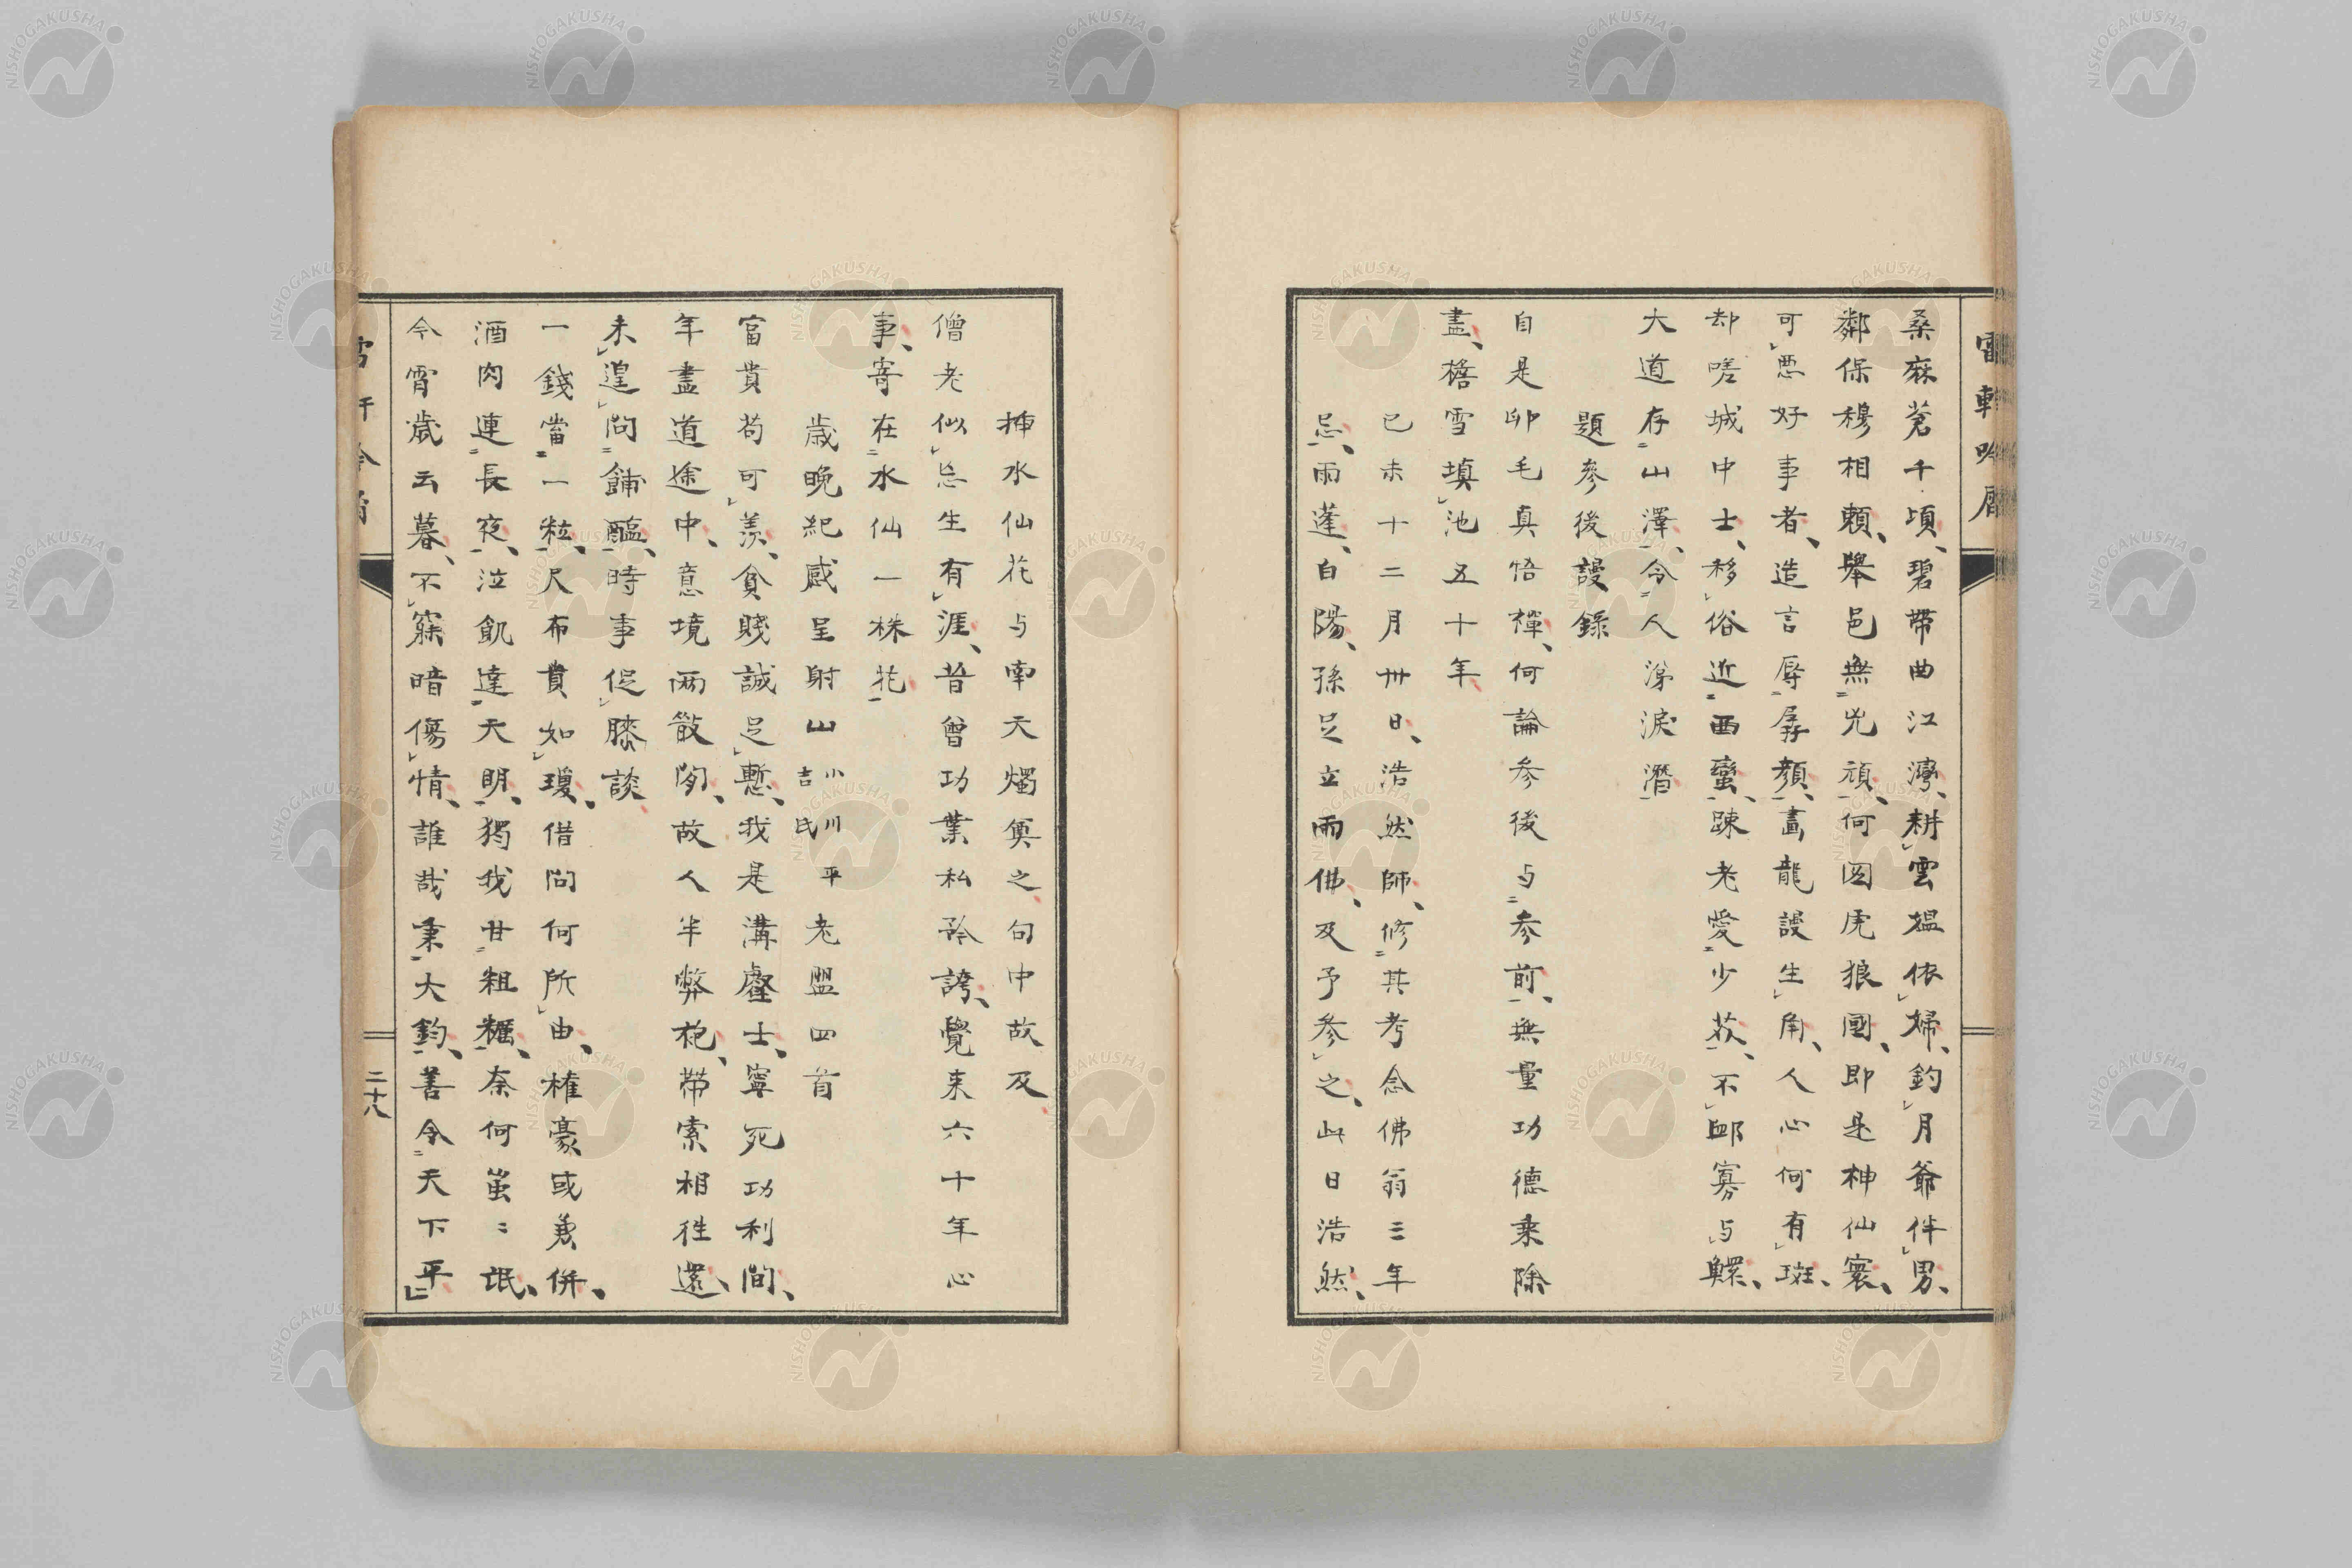 桑麻蒼千頃碧帶曲江灣耕雲媼依婦釣月爺伴男
鄰保穆相賴擧邑無兇頑何図虎狼國即是神仙寰
可悪好事者造言辱孱顏畫龍謾生角人心何有斑
却嗟城中士移俗近西蠻踈老愛少艾不卹寡与鰥
大道存山澤令人涕淚潸
題参後謾錄
自是卯毛真悟禪何論参後与参前無量功德乘除
盡擔雪塡池五十年
己未十二月卅日浩然師修其考念佛翁三年
忌雨蓬白陽孫𠯁立雨佛及予参之此日浩然
挿水仙花与南天燭奠之句中故及
僧老似忘生有涯昔曾功業私矜誇覺来六十年心
事寄在水仙一株花
歳晩紀感呈射山小川平吉氏老盟四首
富貴苟可羨貧賤誠𠯁慙我是溝壑士寧死功利間
年盡道途中意境両散閑故人半弊袍帶索相徃還
未遑問餔醨時事促膝談
一錢當一粒尺布貴如瓊借問何所由権豪或兼併
酒肉連長夜泣飢達天明獨我甘粗糲奈何蚩〻氓
今宵歳云暮不寐暗傷情誰哉秉大鈞善令天下平
二十八
NISHOGAKUSHA